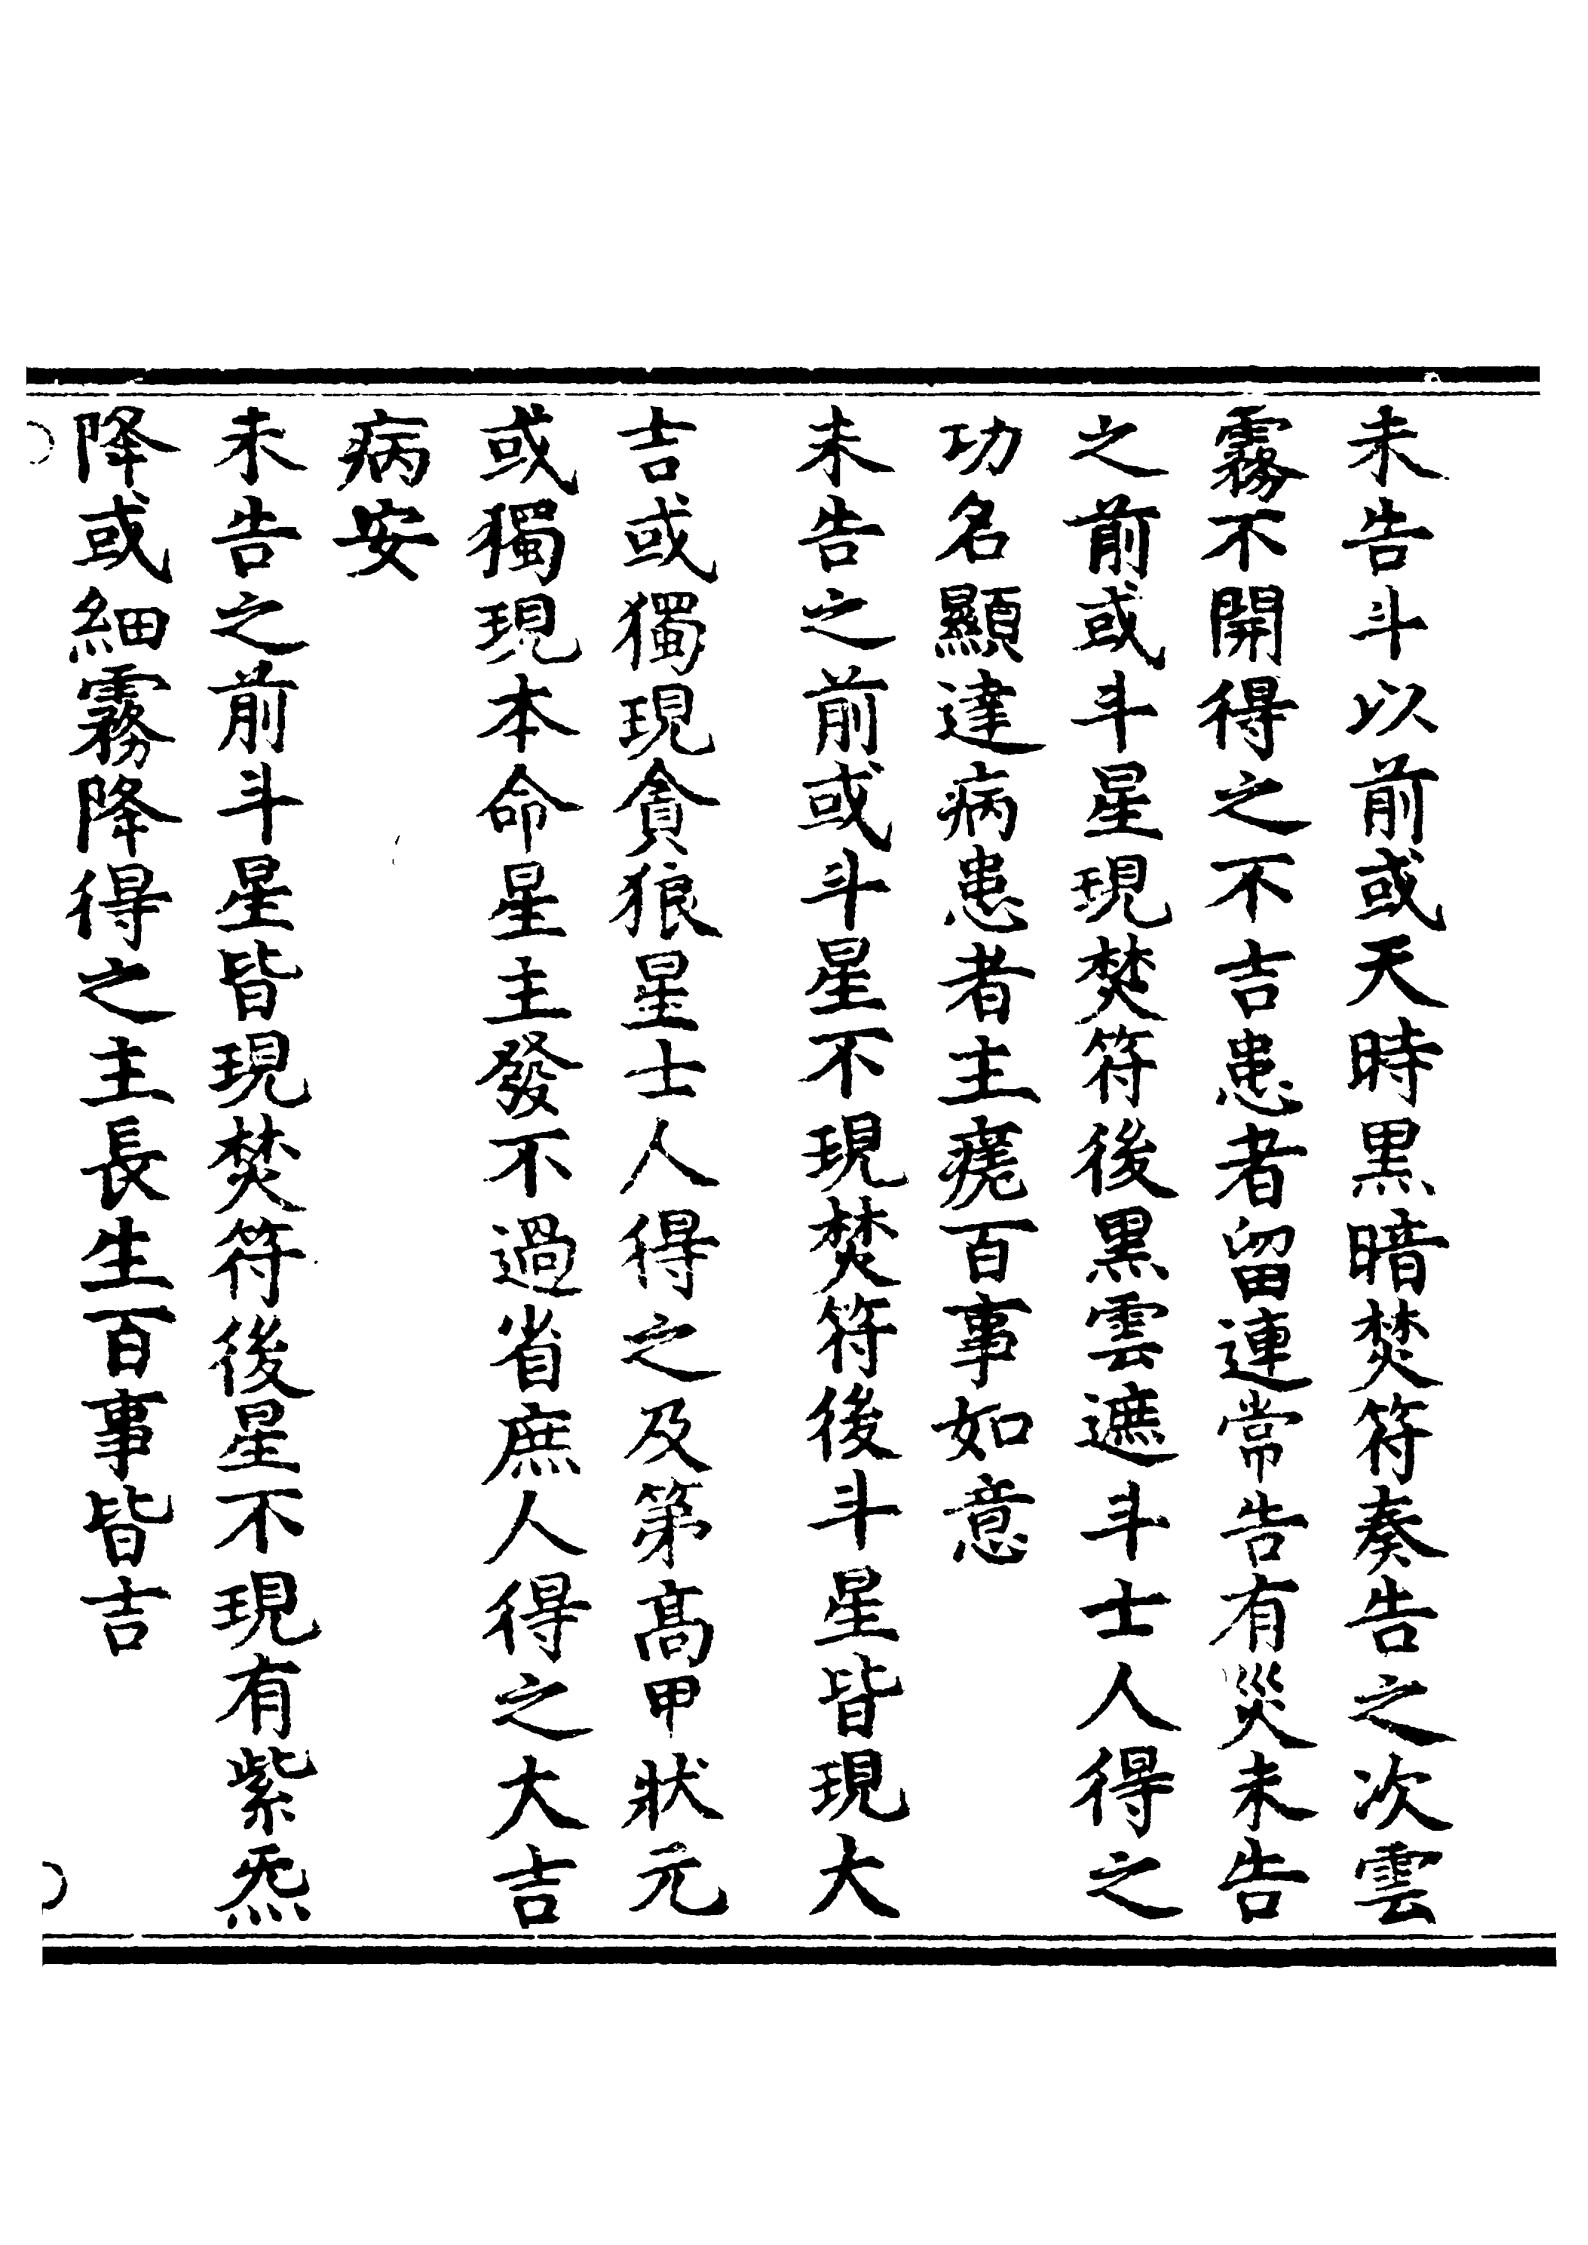 未告斗以前或天時黒暗焚符奏告之次雲
霧不開得之不吉患者留連常告有災未告
之前或斗星現焚符後黒雲遮斗士人得之
功名顯達病患者主痊百事如意
未告之前或斗星不現焚符後斗星皆現大
吉或獨現貪狼星士人得之及第高甲狀元
或獨現本命星主發不過省庶人得之大吉
病安
未告之前斗星皆現焚符後星不現有紫炁
降或細霧降得之主長生百事皆吉